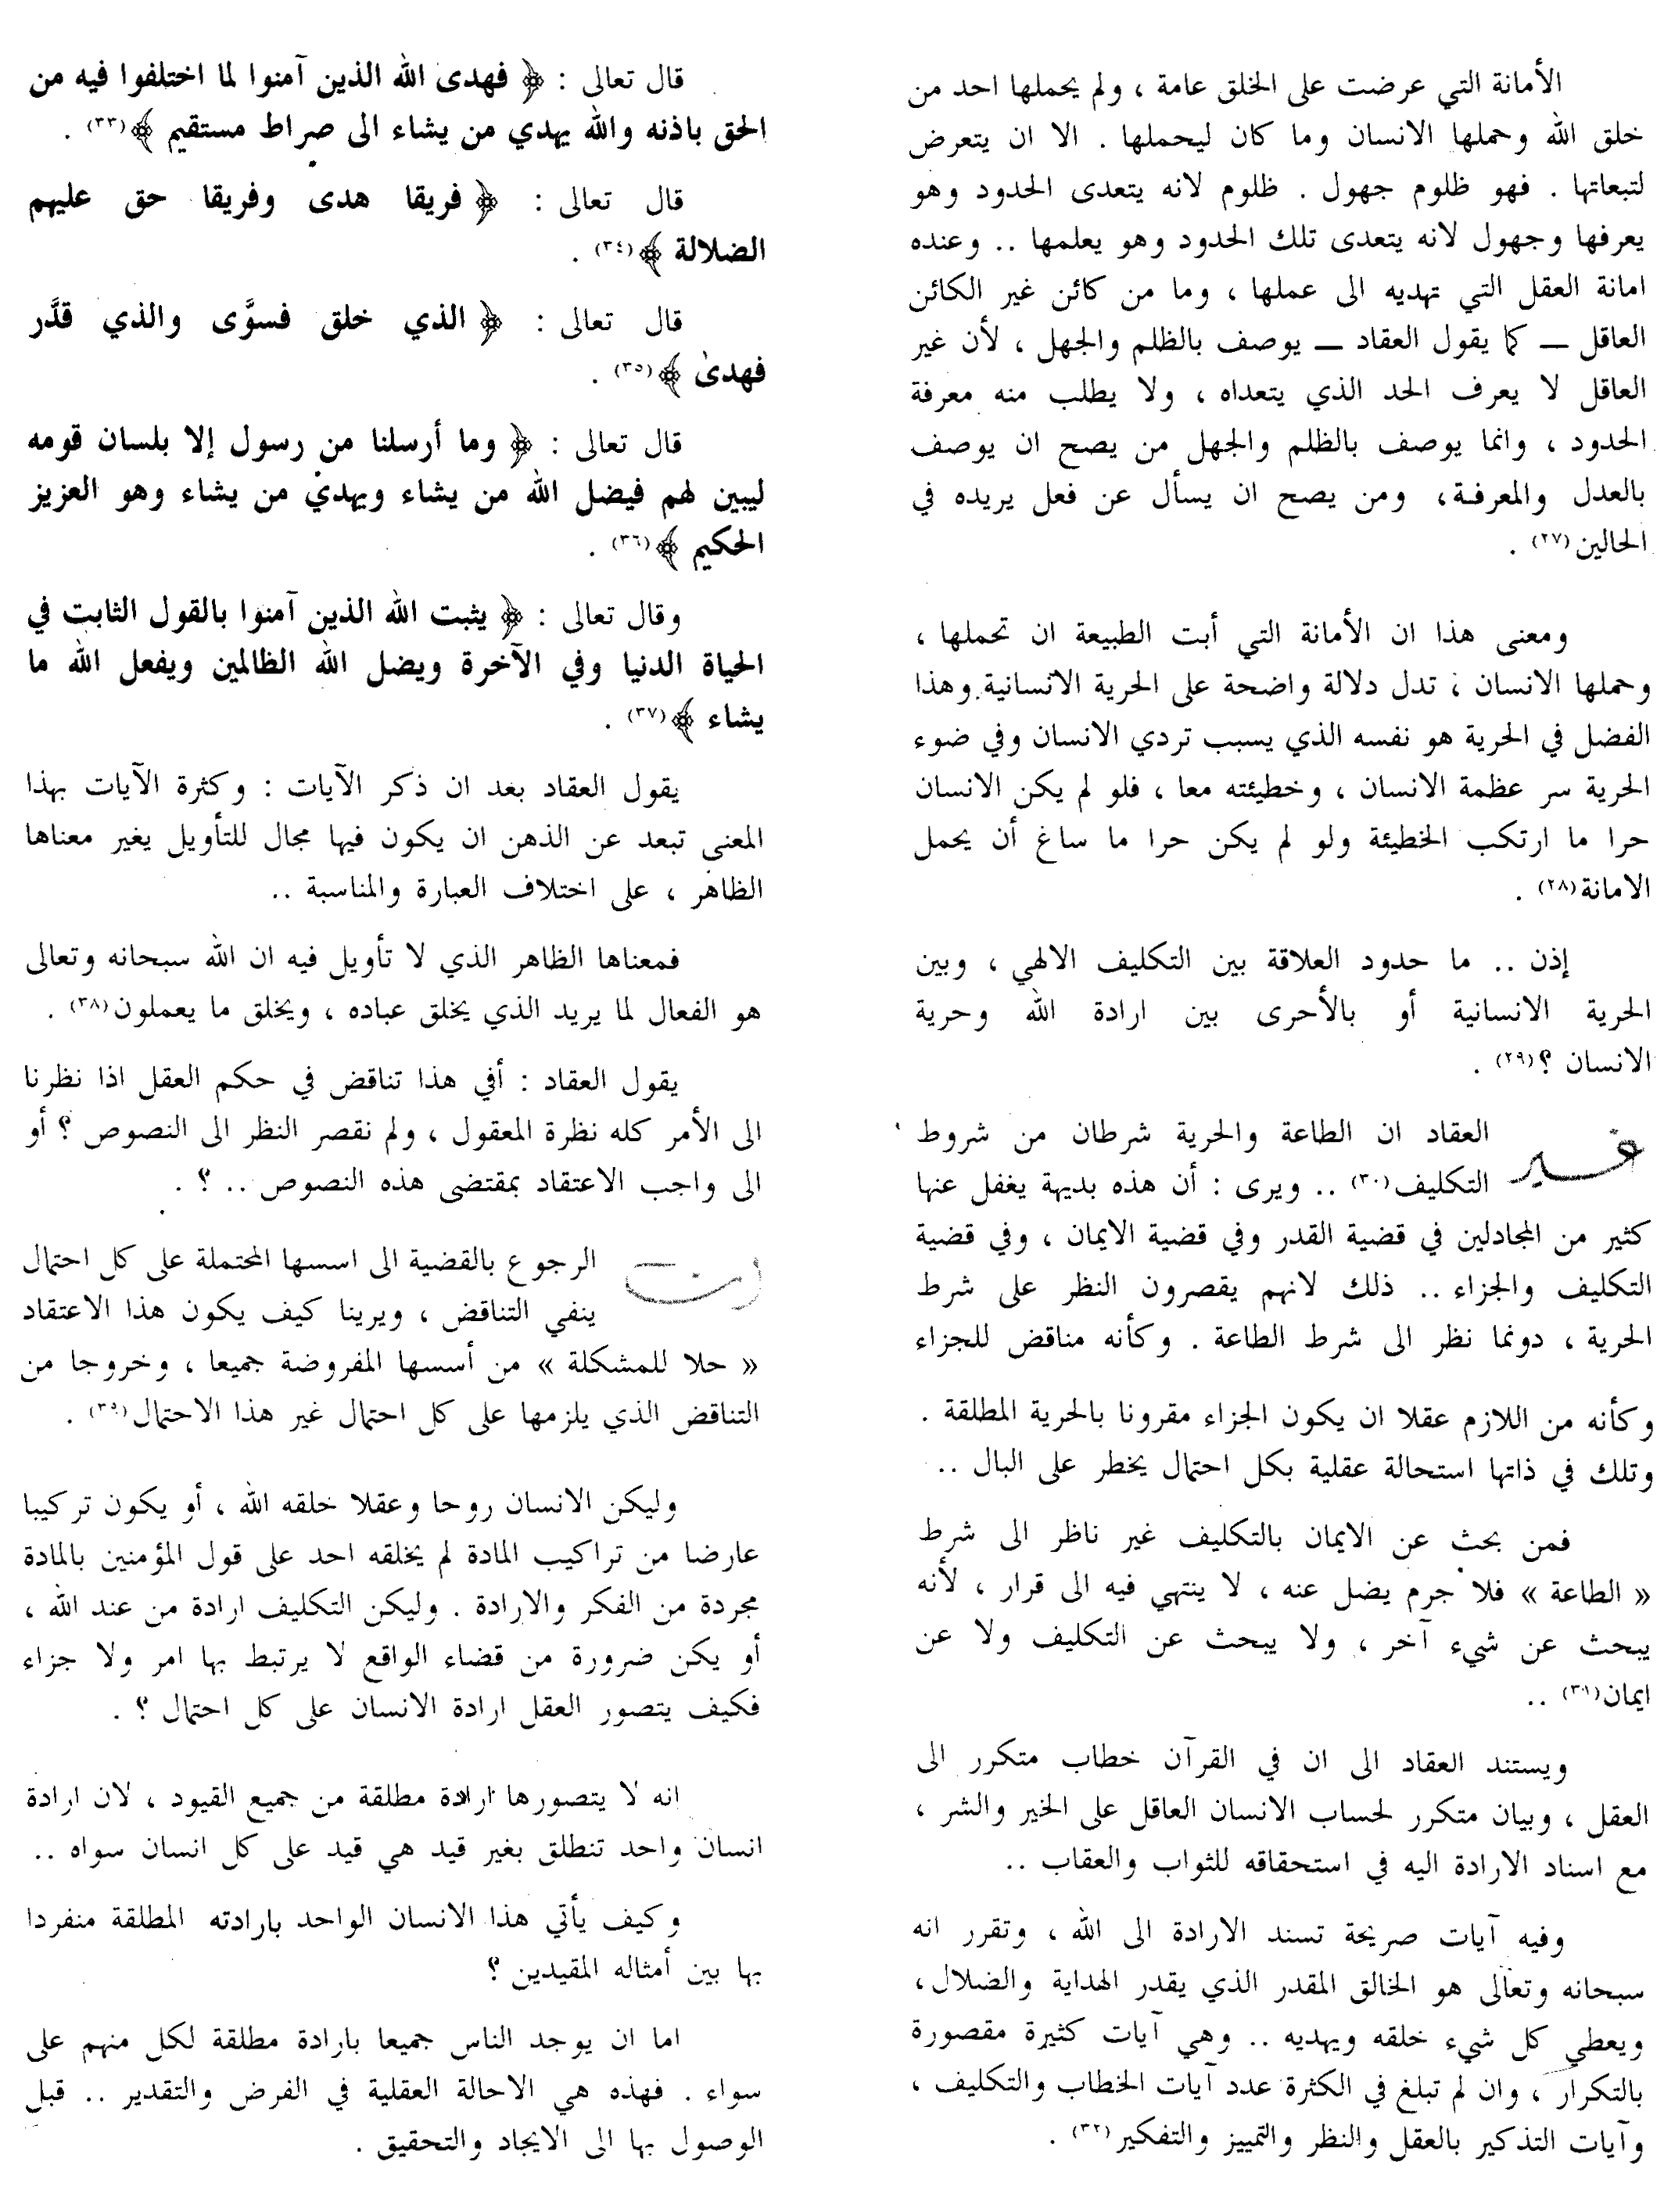 الأمانة التي عرضت على الخلق عامة ، ولم يحملها احد من
خلق الله وحملها الانسان وما كان ليحملها . الا ان يتعرض
لتبعاتها . فهو ظلوم جهول . ظلوم لانه يتعدى الحدود وهو
يعرفها وجهول لانه يتعدى تلك الحدود وهو يعلمها .. وعنده
امانة العقل التي تهديه الى عملها ، وما من كائن غير الكائن
العاقل — كما يقول العقاد — يوصف بالظلم والجهل ، لأن غير
العاقل لا يعرف الحد الذي يتعداه ، ولا يطلب منه معرفة
الحدود ، وانما يوصف بالظلم والجهل من يصح ان يوصف
بالعدل والمعرفة، ومن يصح ان يسأل عن فعل يريده في
الحالين(٢٧) .
ومعنى هذا ان الأمانة التي أبت الطبيعة ان تحملها ،
وحملها الانسان ، تدل دلالة واضحة على الحرية الانسانية وهذا
الفضل في الحرية هو نفسه الذي يسبب تردي الانسان وفي ضوء
الحرية سر عظمة الانسان ، وخطيئته معا ، فلو لم يكن الانسان
حرا ما ارتكب الخطيئة ولو لم يكن حرا ما ساغ أن يحمل
الامانة(٢٨) .
إذن .. ما حدود العلاقة بين التكليف الالهي ، وبين
الحرية الانسانية أو بالأحرى بين ارادة الله وحرية
الانسان ؟(٢٩) .
العقاد ان الطاعة والحرية شرطان من شروط
التكليف(٣٠) .. ويرى : أن هذه بديهة يغفل عنها
كثير من المجادلين في قضية القدر وفي قضية الايمان ، وفي قضية
التكليف والجزاء .. ذلك لانهم يقصرون النظر على شرط
الحرية ، دونما نظر الى شرط الطاعة . وكأنه مناقض للجزاء
وكأنه من اللازم عقلا ان يكون الجزاء مقرونا بالحرية المطلقة .
وتلك في ذاتها استحالة عقلية بكل احتمال يخطر على البال ..
فمن بحث عن الايمان بالتكليف غير ناظر الى شرط
« الطاعة » فلا جرم يضل عنه ، لا ينتهي فيه الى قرار ، لأنه
يبحث عن شيء آخر ، ولا يبحث عن التكليف ولا عن
ايمان(٣١) ..
ويستند العقاد الى ان في القرآن خطاب متكرر الى
العقل ، وبيان متكرر لحساب الانسان العاقل على الخير والشر ،
مع اسناد الارادة اليه في استحقاقه للثواب والعقاب ..
وفيه آيات صريحة تسند الارادة الى الله ، وتقرر انه
سبحانه وتعالى هو الخالق المقدر الذي يقدر الهداية والضلال،
ويعطي كل شيء خلقه ويهديه .. وهي آيات كثيرة مقصورة
بالتكرار ، وان لم تبلغ في الكثرة عدد آيات الخطاب والتكليف ،
وآيات التذكير بالعقل والنظر والتمييز والتفكير(٣٢) .
قال تعالى : ﴿ فهدى الله الذين آمنوا لما اختلفوا فيه من
الحق باذنه والله يهدي من يشاء الى صراط مستقيم ﴾(٣٣) .
قال تعالى : ﴿ فريقا هدى وفريقا حق عليهم
الضلالة ﴾(٣٤) .
قال تعالى : ﴿ الذي خلق فسوَّى والذي قدَّر
فهدىٰ ﴾(٣٥) .
قال تعالى : ﴿ وما أرسلنا من رسول إلا بلسان قومه
ليبين لهم فيضل الله من يشاء ويهدي من يشاء وهو العزيز
الحكيم ﴾(٣٦) .
وقال تعالى : ﴿ يثبت الله الذين آمنوا بالقول الثابت في
الحياة الدنيا وفي الآخرة ويضل الله الظالمين ويفعل الله ما
يشاء ﴾(٣٧) .
يقول العقاد بعد ان ذكر الآيات : وكثرة الآيات بهذا
المعنى تبعد عن الذهن ان يكون فيها مجال للتأويل يغير معناها
الظاهر ، على اختلاف العبارة والمناسبة ..
فمعناها الظاهر الذي لا تأويل فيه ان الله سبحانه وتعالى
هو الفعال لما يريد الذي يخلق عباده ، ويخلق ما يعملون(٣٨) .
يقول العقاد : أفي هذا تناقض في حكم العقل اذا نظرنا
الى الأمر كله نظرة المعقول ، ولم نقصر النظر الى النصوص ؟ أو
الى واجب الاعتقاد بمقتضى هذه النصوص .. ؟ .
الرجوع بالقضية الى اسسها المحتملة على كل احتمال
ينفي التناقض ، ويرينا كيف يكون هذا الاعتقاد
« حلا للمشكلة » من أسسها المفروضة جميعا ، وخروجا من
التناقض الذي يلزمها على كل احتمال غير هذا الاحتمال(٣٩) .
وليكن الانسان روحا وعقلا خلقه الله ، أو يكون تركيبا
عارضا من تراكيب المادة لم يخلقه احد على قول المؤمنين بالمادة
مجردة من الفكر والارادة . وليكن التكليف ارادة من عند الله ،
أو يكن ضرورة من قضاء الواقع لا يرتبط بها امر ولا جزاء
فكيف يتصور العقل ارادة الانسان على كل احتمال ؟ .
انه لا يتصورها ارادة مطلقة من جميع القيود ، لان ارادة
انسان واحد تنطلق بغير قيد هي قيد على كل انسان سواه ..
وكيف يأتي هذا الانسان الواحد بارادته المطلقة منفردا
بها بين أمثاله المقيدين ؟
اما ان يوجد الناس جميعا بارادة مطلقة لكل منهم على
سواء . فهذه هي الاحالة العقلية في الفرض والتقدير .. قبل
الوصول بها الى الايجاد والتحقيق .